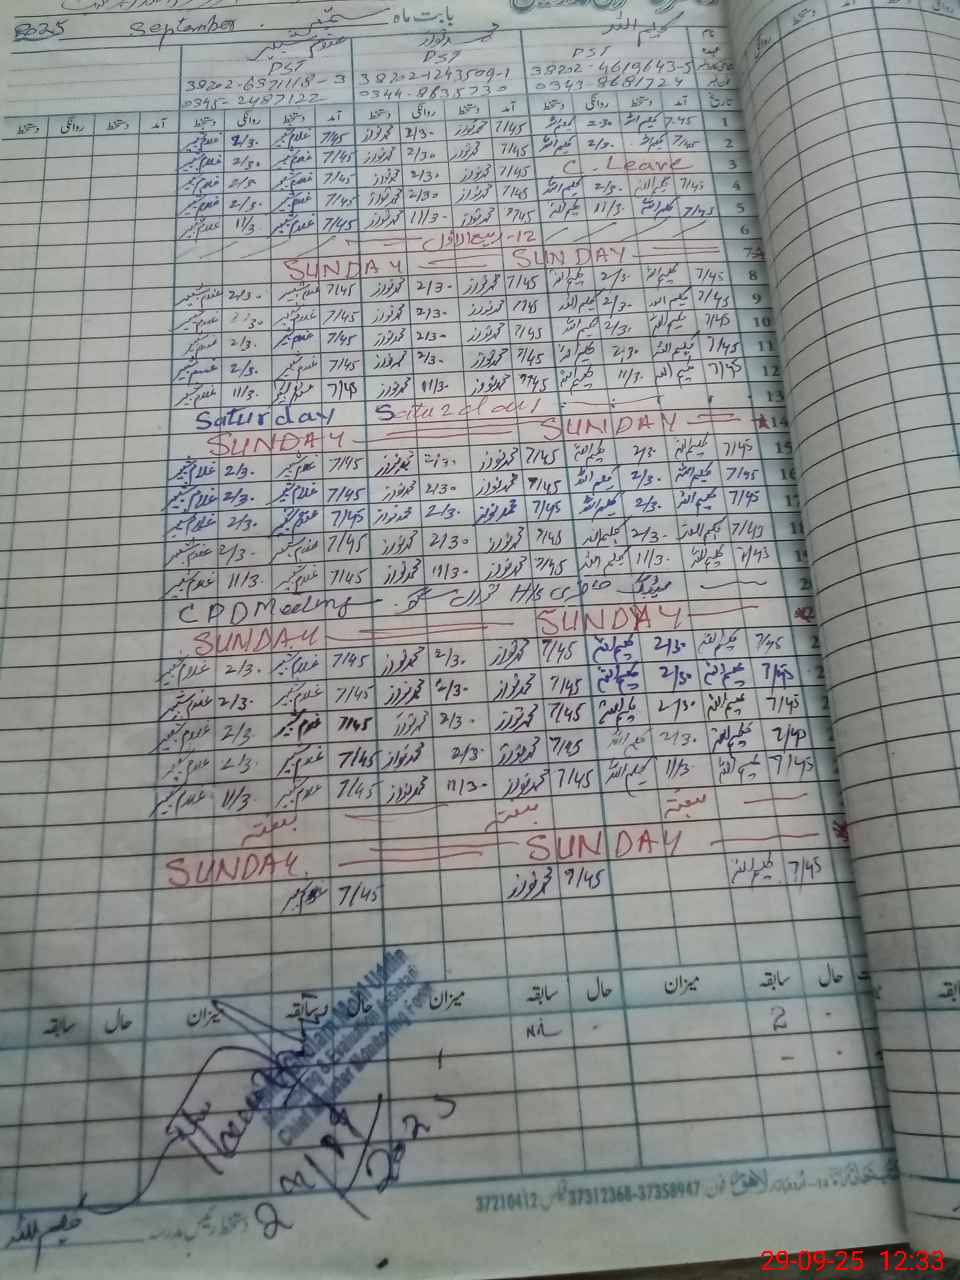 2025 September ستمبر بابت ماہ
غلام شبیر محمد نواز کلیم اللہ نام
PST PST PST
38202-6371118-3 38202-1243509-1 38202-4619643-5
0345-2487122 0344-8635730 0343-8681724
دستخط روانگی دستخط آمد دستخط روانگی دستخط آمد دستخط روانگی دستخط آمد دستخط روانگی دستخط آمد تاریخ
غلام شبیر 2/30 غلام شبیر 7/45 محمد نواز 2/30 محمد نواز 7/45 کلیم اللہ 2/30 کلیم اللہ 7/45 1
غلام شبیر 2/30 غلام شبیر 7/45 محمد نواز 2/30 محمد نواز 7/45 کلیم اللہ 2/30 کلیم اللہ 7/45 2
غلام شبیر 2/30 غلام شبیر 7/45 محمد نواز 2/30 محمد نواز 7/45 C. Leave 3
غلام شبیر 2/30 غلام شبیر 7/45 محمد نواز 2/30 محمد نواز 7/45 کلیم اللہ 2/30 کلیم اللہ 7/45 4
غلام شبیر 11/30 غلام شبیر 7/45 محمد نواز 11/30 محمد نواز 7/45 کلیم اللہ 11/30 کلیم اللہ 7/45 5
12- ربیع الاول 6
SUNDAY SUNDAY 7
غلام شبیر 2/30 غلام شبیر 7/45 محمد نواز 2/30 محمد نواز 7/45 کلیم اللہ 2/30 کلیم اللہ 7/45 8
غلام شبیر 2/30 غلام شبیر 7/45 محمد نواز 2/30 محمد نواز 7/45 کلیم اللہ 2/30 کلیم اللہ 7/45 9
غلام شبیر 2/30 غلام شبیر 7/45 محمد نواز 2/30 محمد نواز 7/45 کلیم اللہ 2/30 کلیم اللہ 7/45 10
غلام شبیر 2/30 غلام شبیر 7/45 محمد نواز 2/30 محمد نواز 7/45 کلیم اللہ 2/30 کلیم اللہ 7/45 11
غلام شبیر 11/30 غلام شبیر 7/45 محمد نواز 11/30 محمد نواز 7/45 کلیم اللہ 11/30 کلیم اللہ 7/45 12
Saturday Saturday 13
SUNDAY SUNDAY 14
غلام شبیر 2/30 غلام شبیر 7/45 محمد نواز 2/30 محمد نواز 7/45 کلیم اللہ 2/30 کلیم اللہ 7/45 15
غلام شبیر 2/30 غلام شبیر 7/45 محمد نواز 2/30 محمد نواز 7/45 کلیم اللہ 2/30 کلیم اللہ 7/45 16
غلام شبیر 2/30 غلام شبیر 7/45 محمد نواز 2/30 محمد نواز 7/45 کلیم اللہ 2/30 کلیم اللہ 7/45 17
غلام شبیر 2/30 غلام شبیر 7/45 محمد نواز 2/30 محمد نواز 7/45 کلیم اللہ 2/30 کلیم اللہ 7/45 18
غلام شبیر 11/30 غلام شبیر 7/45 محمد نواز 11/30 محمد نواز 7/45 کلیم اللہ 11/30 کلیم اللہ 7/45
CPD Meeting H/S میٹنگ
SUNDAY SUNDAY
غلام شبیر 2/30 غلام شبیر 7/45 محمد نواز 2/30 محمد نواز 7/45 کلیم اللہ 2/30 کلیم اللہ 7/45
غلام شبیر 2/30 غلام شبیر 7/45 محمد نواز 2/30 محمد نواز 7/45 کلیم اللہ 2/30 کلیم اللہ 7/45
غلام شبیر 2/30 غلام شبیر 7/45 محمد نواز 2/30 محمد نواز 7/45 کلیم اللہ 2/30 کلیم اللہ 7/45
غلام شبیر 2/30 غلام شبیر 7/45 محمد نواز 2/30 محمد نواز 7/45 کلیم اللہ 2/30 کلیم اللہ 7/45
غلام شبیر 11/30 غلام شبیر 7/45 محمد نواز 11/30 محمد نواز 7/45 کلیم اللہ 11/30 کلیم اللہ 7/45
ہفتہ ہفتہ ہفتہ
SUNDAY SUNDAY
غلام شبیر 7/45 محمد نواز 7/45 کلیم اللہ 7/45
سابقہ حال میزان سابقہ حال میزان سابقہ حال میزان سابقہ حال
Nil 2
Monitoring & Evaluation Assistant
Chief Minister Monitoring Force
2025
کلیم اللہ دستخط رئیس مدرسہ
لاہور فون 37312368-37358947 فیکس 37210412
29-09-25 12:33